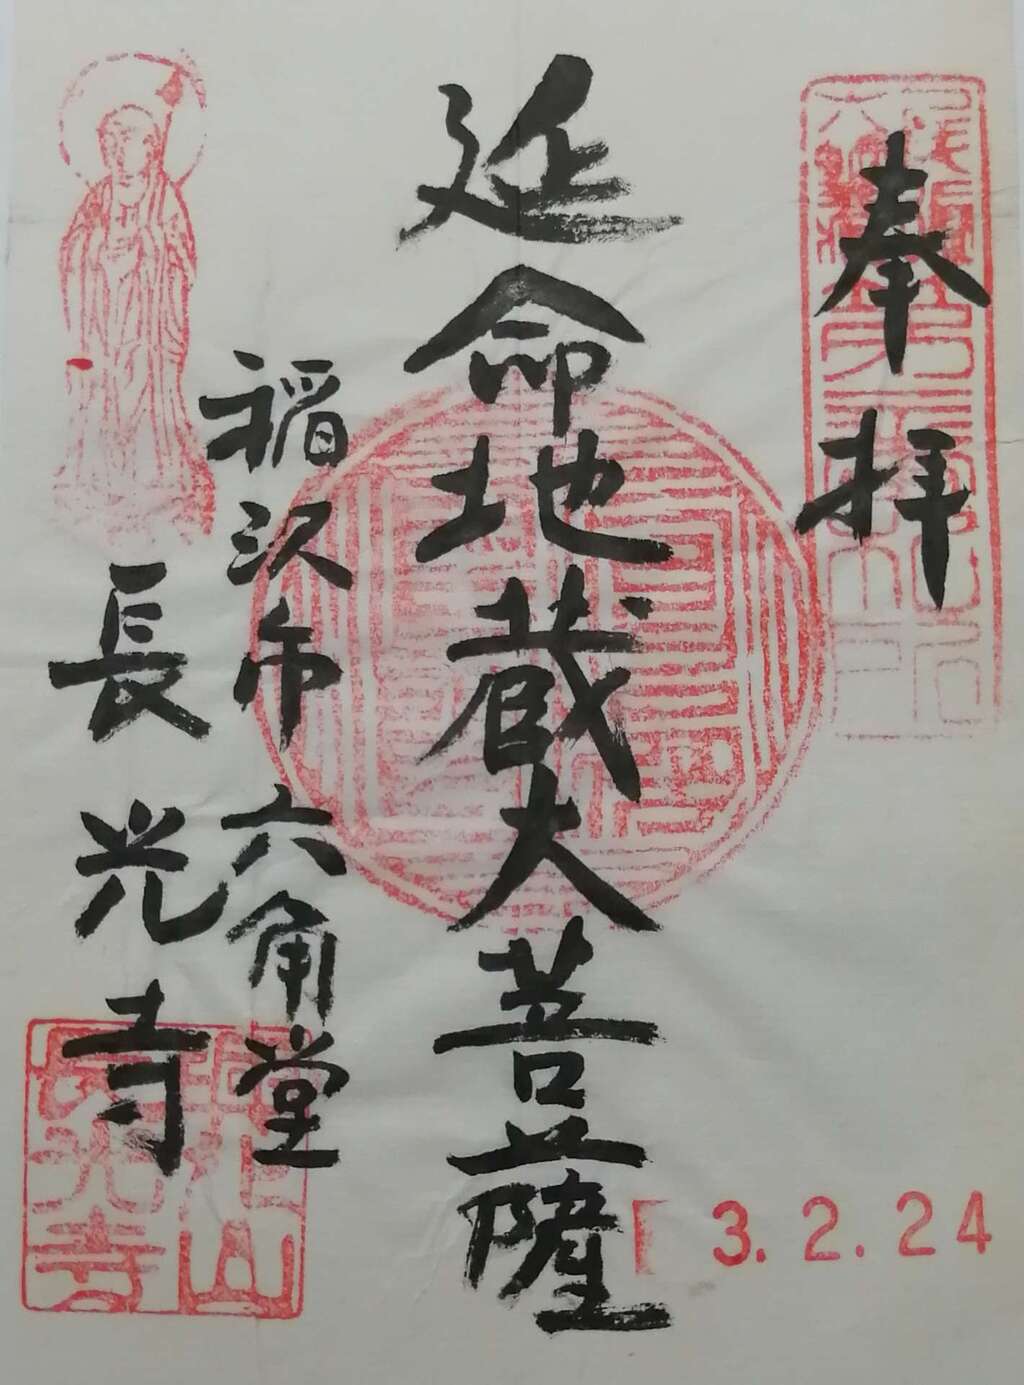 奉拝
延命地蔵大菩薩
稲沢市 六角堂
長光寺
3.2.24